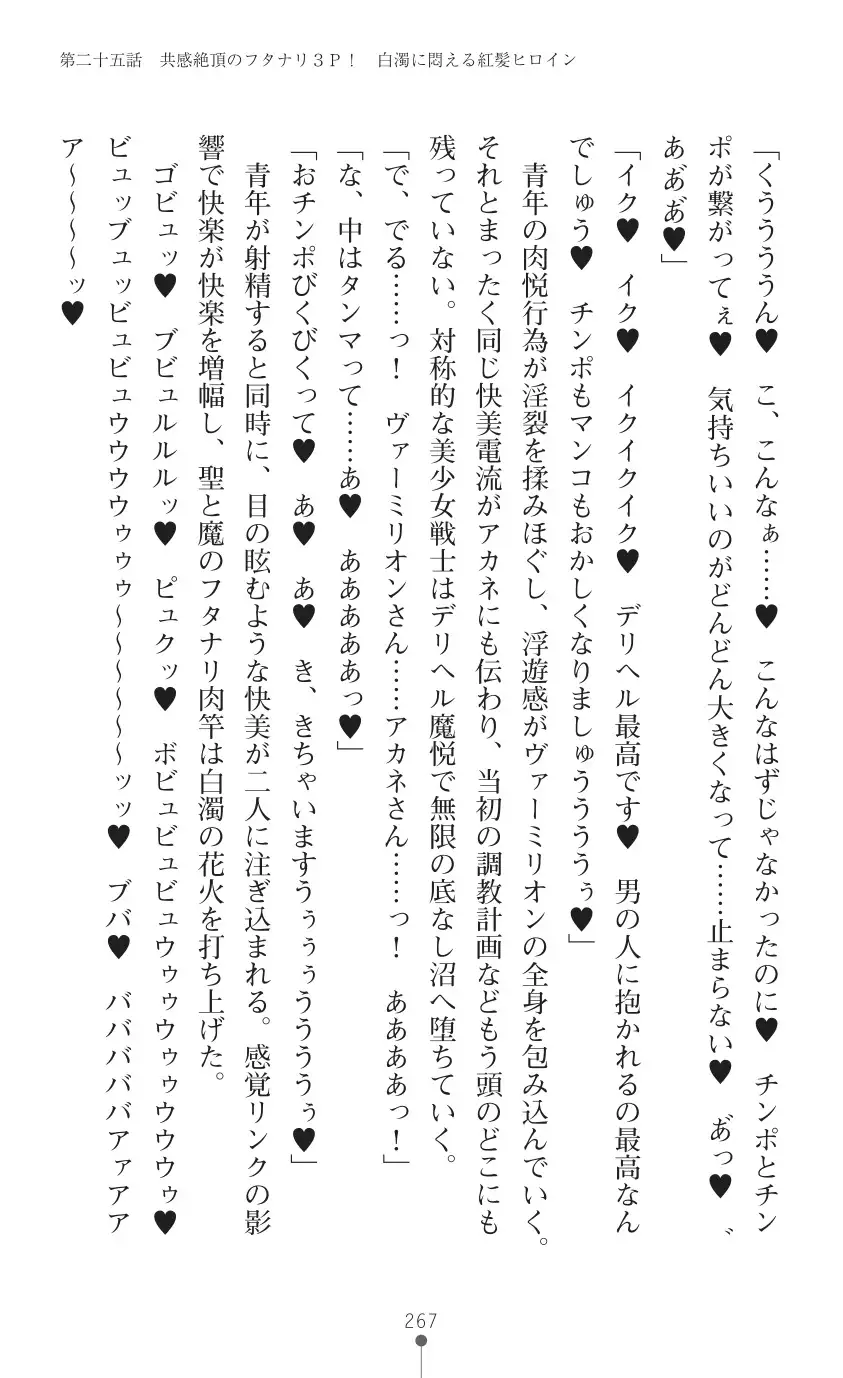 第二十五話　共感絶頂のフタナリ３Ｐ！　白濁に悶える紅髪ヒロイン
「くううううん♥　こ、こんなぁ……♥　こんなはずじゃなかったのに♥　チンポとチン
ポが繋がってぇ♥　気持ちいいのがどんどん大きくなって……止まらない♥　あ゛っ♥　゛
あ゛あ゛♥」
「イク♥　イク♥　イクイクイク♥　デリヘル最高です♥　男の人に抱かれるの最高なん
でしゅう♥　チンポもマンコもおかしくなりましゅうううぅ♥」
　青年の肉悦行為が淫裂を揉みほぐし、浮遊感がヴァーミリオンの全身を包み込んでいく。
それとまったく同じ快美電流がアカネにも伝わり、当初の調教計画などもう頭のどこにも
残っていない。対称的な美少女戦士はデリヘル魔悦で無限の底なし沼へ堕ちていく。
「で、でる……っ！　ヴァーミリオンさん……アカネさん……っ！　ああああっ！」
「な、中はタンマって……あ♥　あああああっ♥」
「おチンポびくびくって♥　あ♥　あ♥　き、きちゃいますうぅぅぅううううぅ♥」
　青年が射精すると同時に、目の眩むような快美が二人に注ぎ込まれる。感覚リンクの影
響で快楽が快楽を増幅し、聖と魔のフタナリ肉竿は白濁の花火を打ち上げた。
　ゴビュッ♥　ブビュルルルッ♥　ピュクッ♥　ボビュビュビュウゥゥウゥゥウウウゥ♥
ビュッブュッビュビュウウウウゥゥゥ～～～～～～ッッ♥　ブバ♥　バババババアァアア
ア～～～～～ッ♥
267